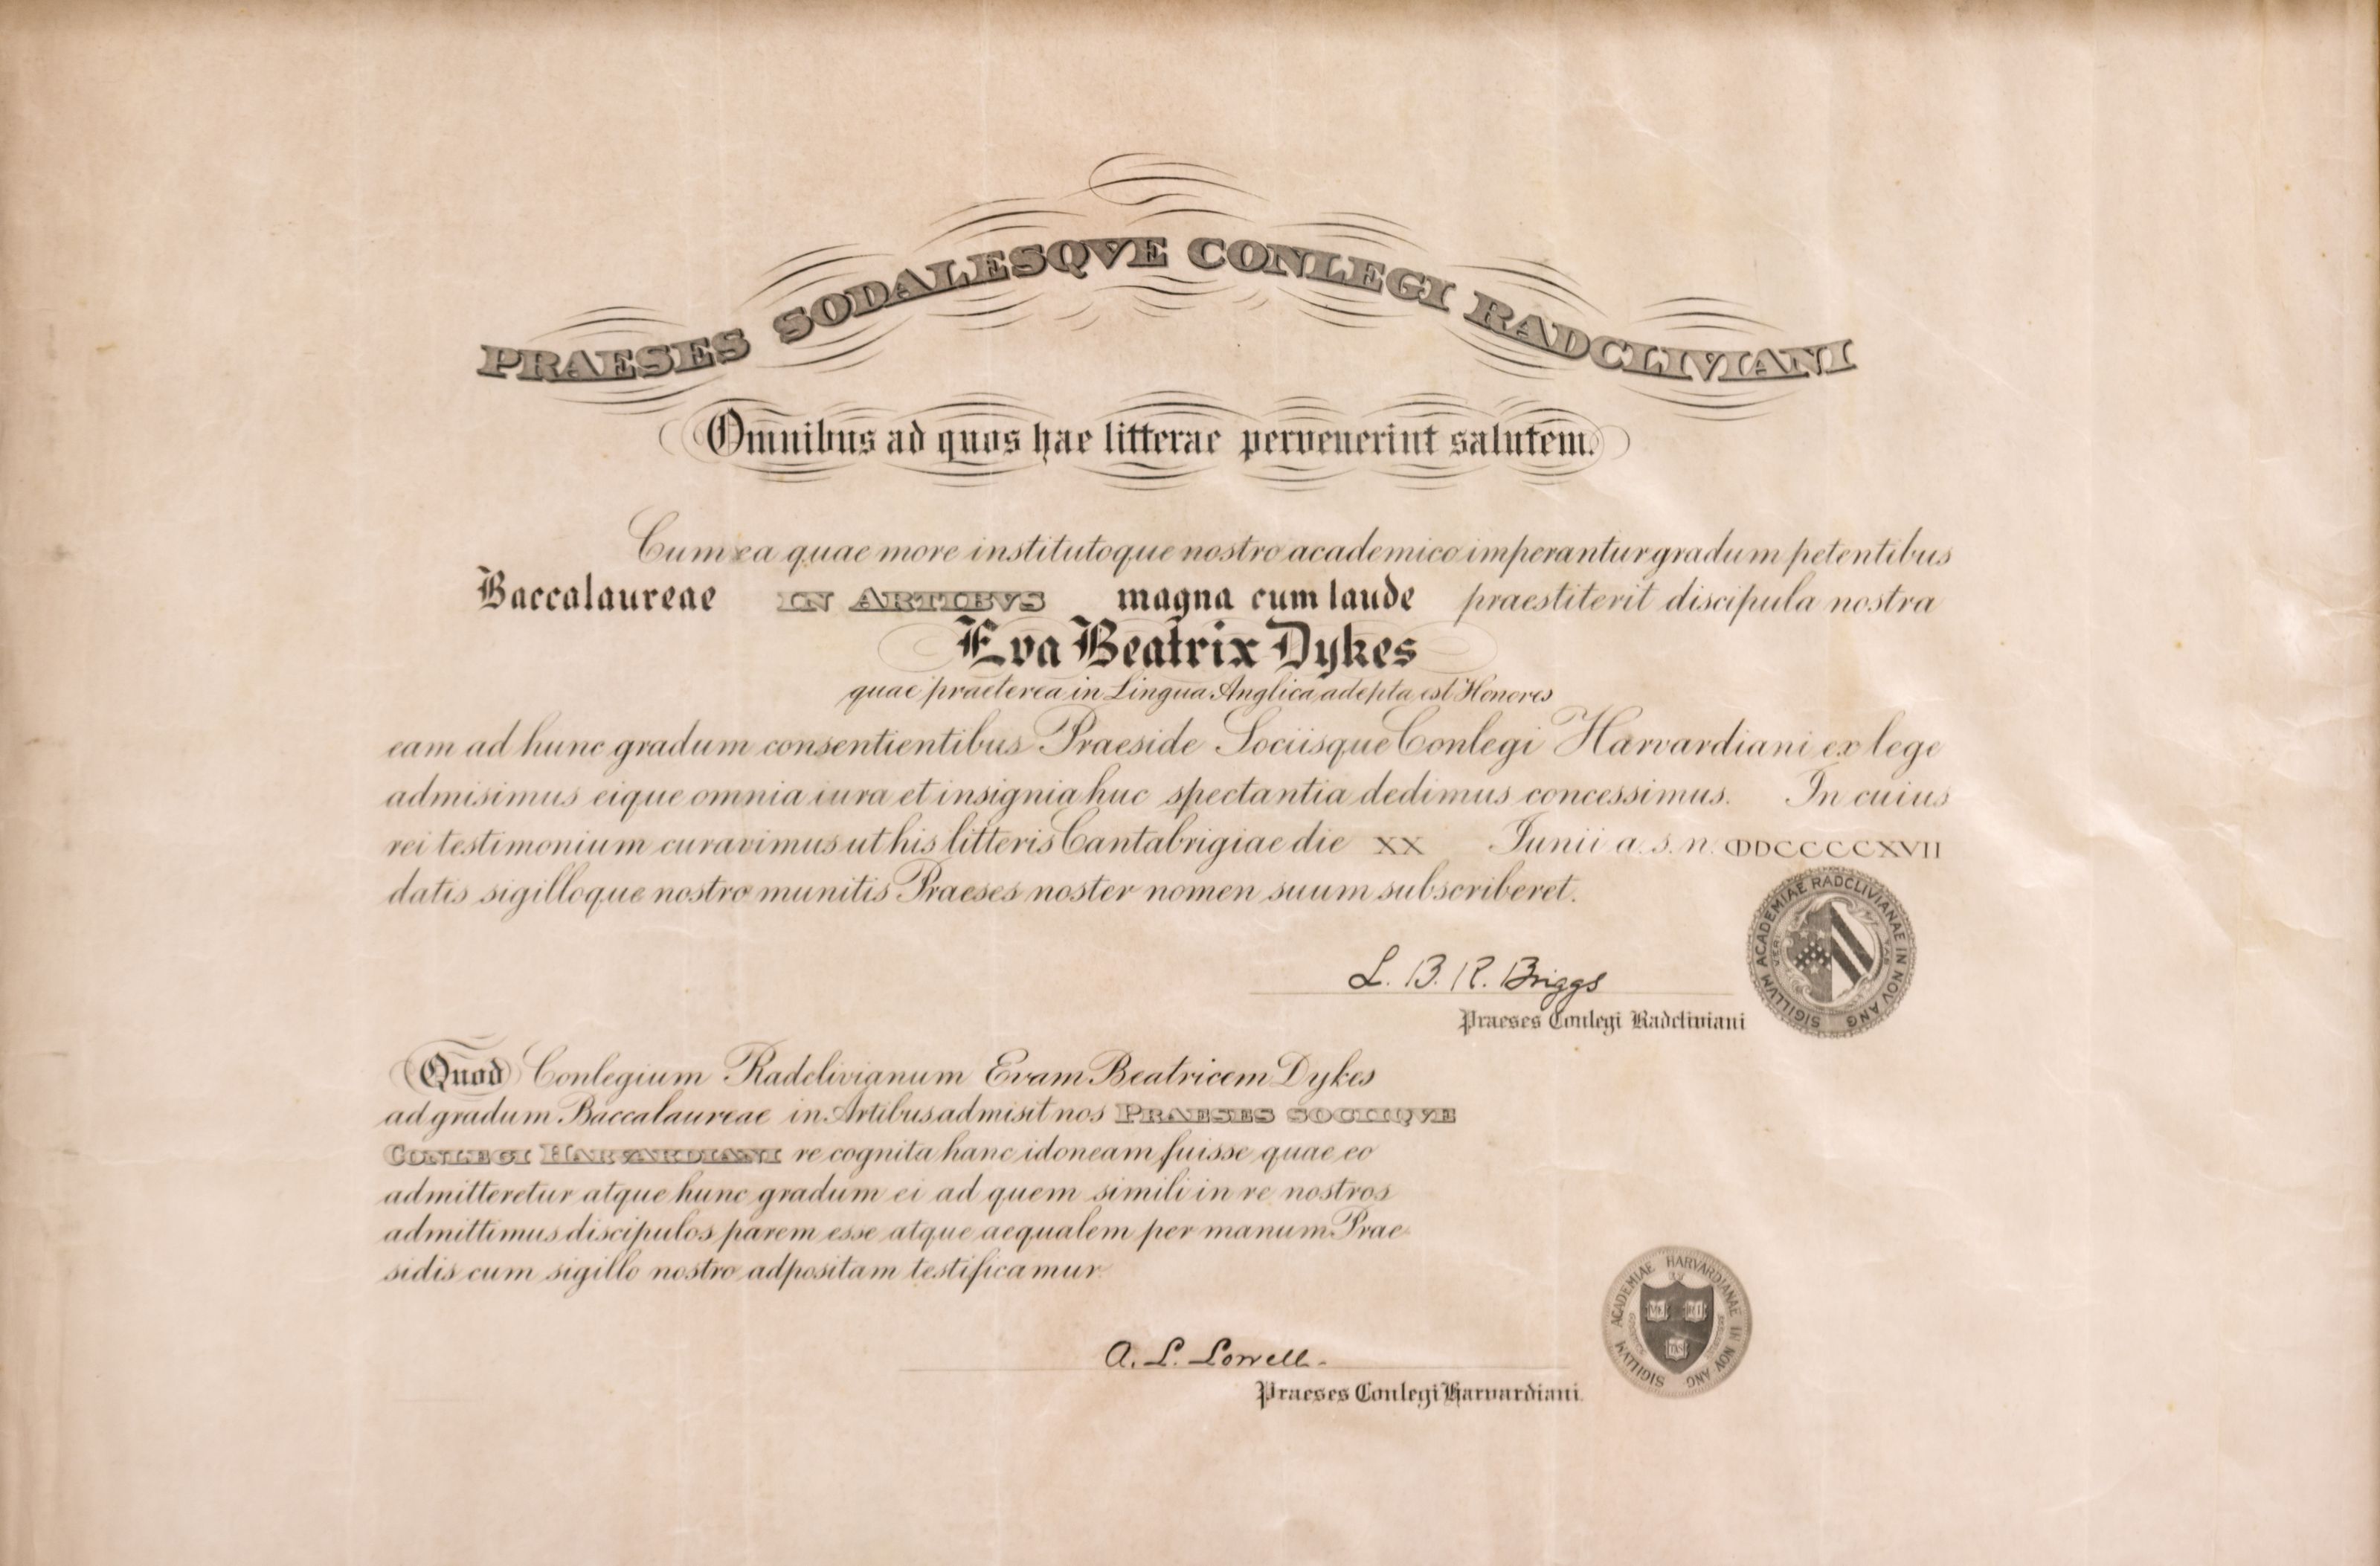 PRAESES SODALESQVE CONLEGI RADCLIVIANI
Omnibus ad quos hae litterae pervenerint salutem.
Cum ea quae more institutoque nostro academico imperantur gradum petentibus
Baccalaureae IN ARTIBVS magna cum laude praestiterit discipula nostra
Eva Beatrix Dykes
quae praeterea in Lingua Anglica adepta est Honores
eam ad hunc gradum consentientibus Praeside Sociisque Conlegi Harvardiani ex lege
admisimus eique omnia iura et insignia huc spectantia dedimus concessimus. In cuius
rei testimonium curavimus ut his litteris Cantabrigiae die XX Junii a. s. n. ↀDCCCCXVII
datis sigilloque nostro munitis Praeses noster nomen suum subscriberet.
L. B. R. Briggs
Praeses Conlegi Radcliviani
SIGILLVM ACADEMIAE RADCLIVIANAE IN NOV ANG
VERI TAS
Quod Conlegium Radclivianum Evam Beatricem Dykes
ad gradum Baccalaureae in Artibus admisit nos PRAESES SOCIIQVE
CONLEGI HARVARDIANI re cognita hanc idoneam fuisse quae eo
admitteretur atque hunc gradum ei ad quem simili in re nostros
admittimus discipulos parem esse atque aequalem per manum Prae
sidis cum sigillo nostro adpositam testificamur
A. L. Lowell
Praeses Conlegi Harvardiani
SIGILLVM ACADEMIAE HARVARDIANAE IN NOV ANG
VE RI TAS